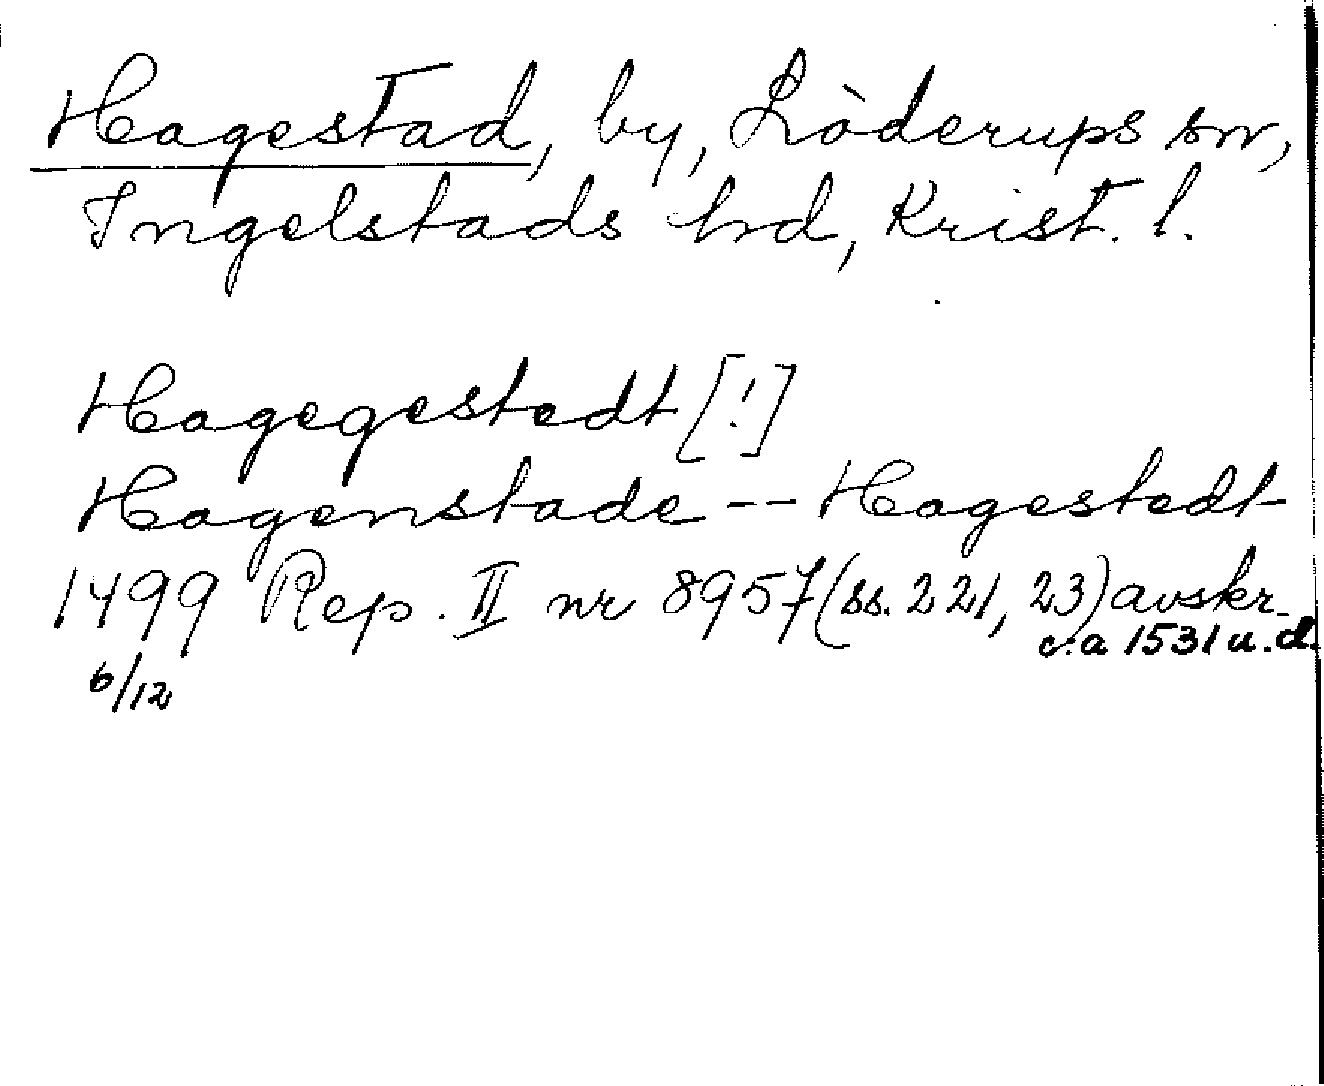 Hagestad, by, Löderups sn,
Ingelstads hd, Krist. l.
Hagegestedt [!]
Hagenstade -- Hagestedt
1499 Rep. II nr 8957 (ss. 221, 23) avskr.
c:a 1531 u.d.
6/12